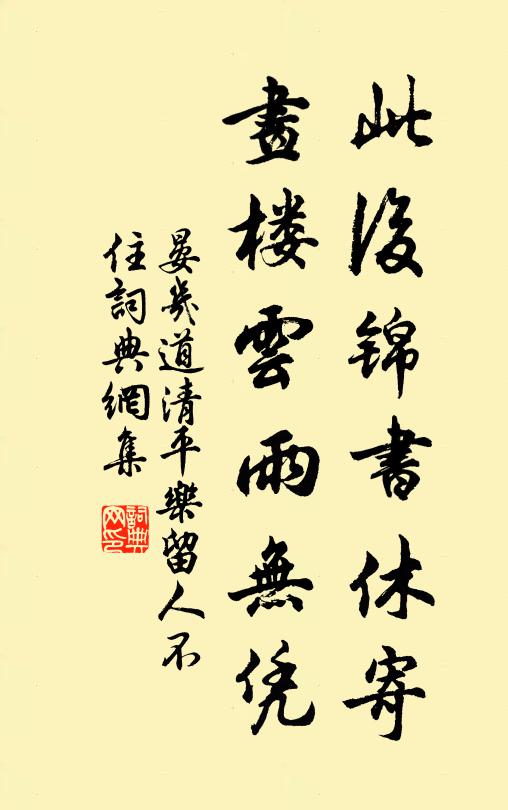 此後锦書休寄
畫楼雲雨無凭
晏幾道清平樂留人不
住詞典網集
詞典
网印